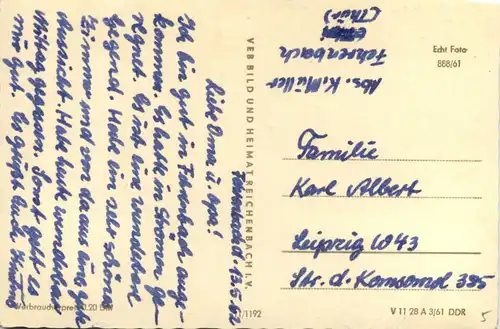 Fehrenbach d. 13.5.62
Liebe Oma u. Opa!
Ich bin gut in Fehrenbach ange-
kommen. Es hatte in Strömen ge-
regnet. Es ist eine wunderbare
Gegend. Habe ein sehr schönes
Zimmer und von da aus eine gute
Aussicht. Habe heute wunderbar
Mittag gegessen. Sonst geht es
mir gut. Es grüßt Euch
Verbraucherpreis 0.20 DM
VEB BILD UND HEIMAT REICHENBACH I. V.
/1192
Abs. K. Müller
Fehrenbach
(Thür.)
Echt Foto
888/61
Familie
Karl Albert
Leipzig W43
Str. d. Komsomol 395
V 11 28 A 3/61 DDR
5